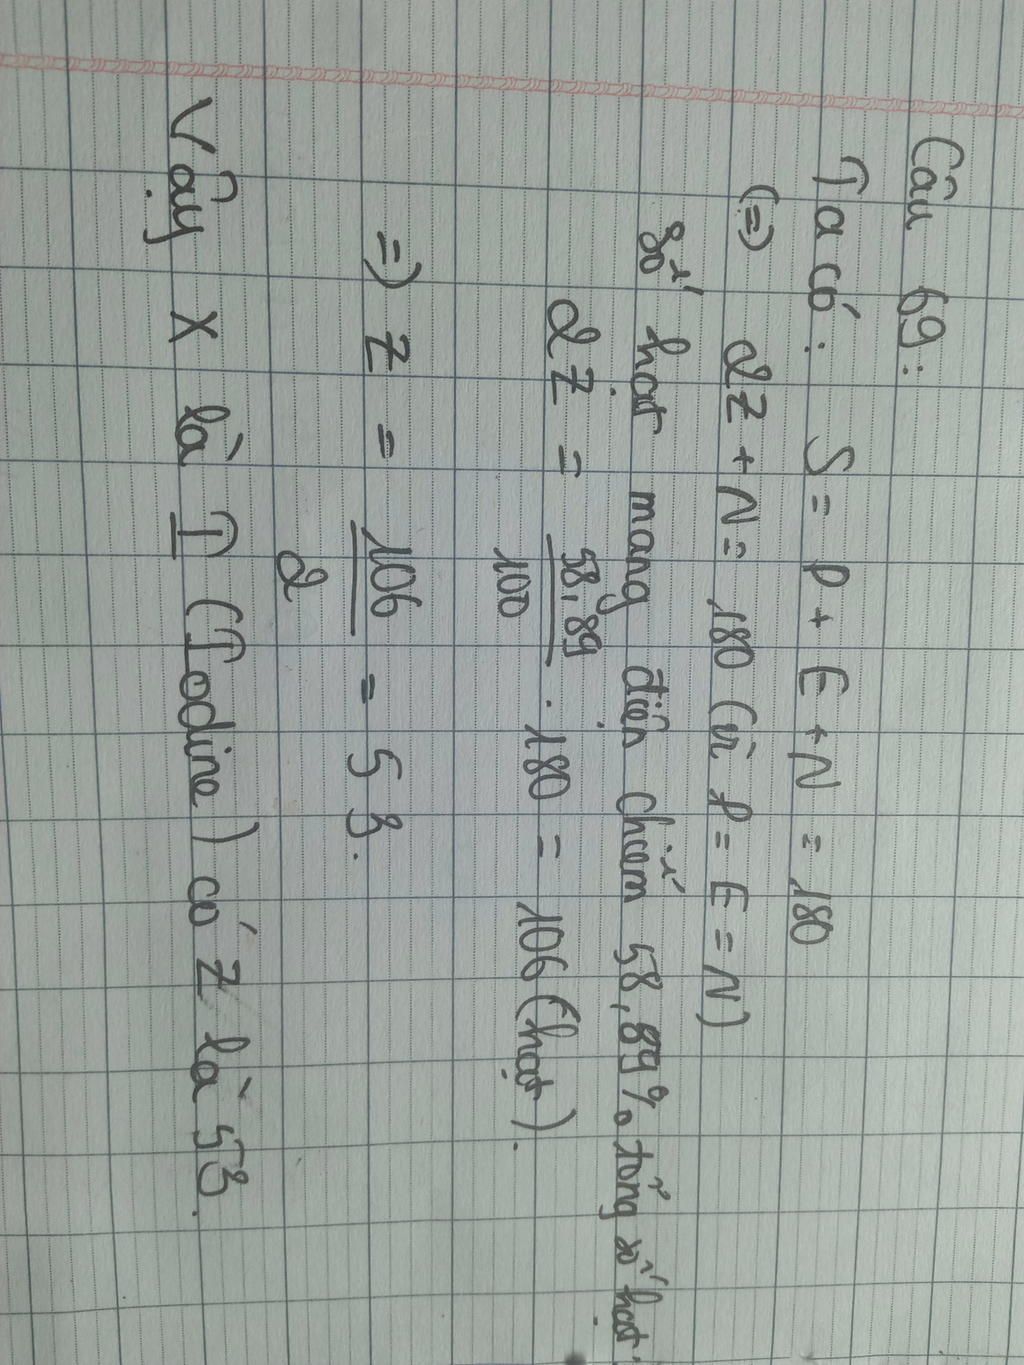 Câu 69:
Ta có: S = P + E + N = 180
(=) 2Z + N = 180 (vì P = E = N)
số hạt mang điện chiếm 58,89% tổng số hạt.
2Z = 58,89/100 . 180 = 106 (hạt).
=) Z = 106/2 = 53.
Vậy X là I (Iodine) có Z là 53.